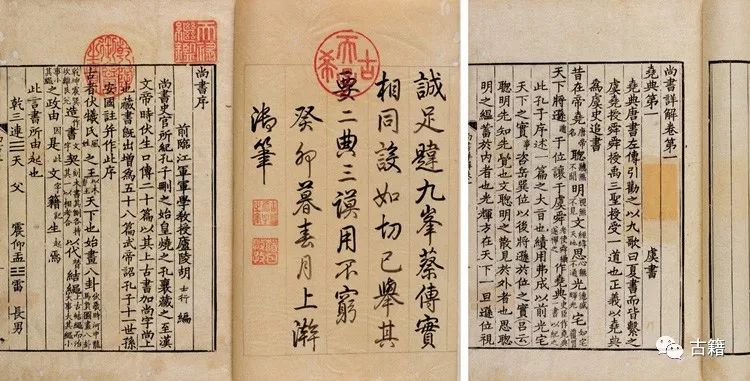 誠足韙九峯蔡傳實
相同設如切己舉其
要二典三謨用不窮
癸卯暮春月上澣
御筆
古希天子
尚書序
前臨江軍軍學教授廬陵胡士行編
尚書史官所紀孔子刪之始皇燒之孔襄藏之至漢
文帝時伏生口傳二十篇以其上古書加尚字尚上
也藏書既出增為五十八篇武帝詔孔子十一世孫
安國註并作此序
古者伏犧氏之王天下也始畫八卦
造書契以代結繩
之政由是文籍生焉
此言書所由起也
乾三連☰天父 震仰盂☳雷長男
尚書詳解卷第一
堯典第一 虞書
堯典唐書左傳引勸之以九歌曰夏書而皆繫之
虞堯授舜舜授禹三聖授受一道也正義以堯典
為虞史追書
昔在帝堯聰明文思光宅
天下將遜于位讓于虞舜作堯典
此孔子序述一篇之大言也績用弗成以前光宅
天下之實咨岳巽位以後將遜於位之實呂云
聰明先知先覺也文聰明之散見於外者也思聰
明之蘊蓄於內者也光輝方在天下一旦遜位視
古籍